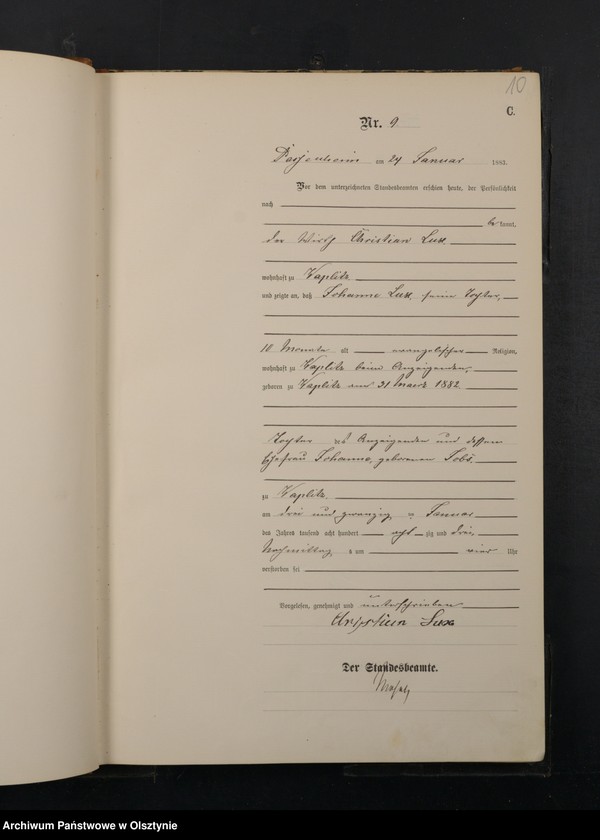 10
C.
Nr. 9.
Passenheim am 24 Januar 1883.
Vor dem unterzeichneten Standesbeamten erschien heute, der Persönlichkeit
nach
be kannt,
der Wirth Christian Lux
wohnhaft zu Waplitz
und zeigte an, daß Johanne Lux, seine Tochter,
10 Monate alt evangelischer Religion,
wohnhaft zu Waplitz beim Anzeigenden,
geboren zu Waplitz am 31 Maerz 1882
Tochter des Anzeigenden und dessen
Ehefrau Johanne, geborenen
zu Waplitz
am drei und zwanzig ten Januar
des Jahres tausend acht hundert acht zig und drei,
Nachmittag s um vier Uhr
verstorben sei
Vorgelesen, genehmigt und unterschrieben
Christian Lux
Der Standesbeamte.
Archiwum Państwowe w Olsztynie